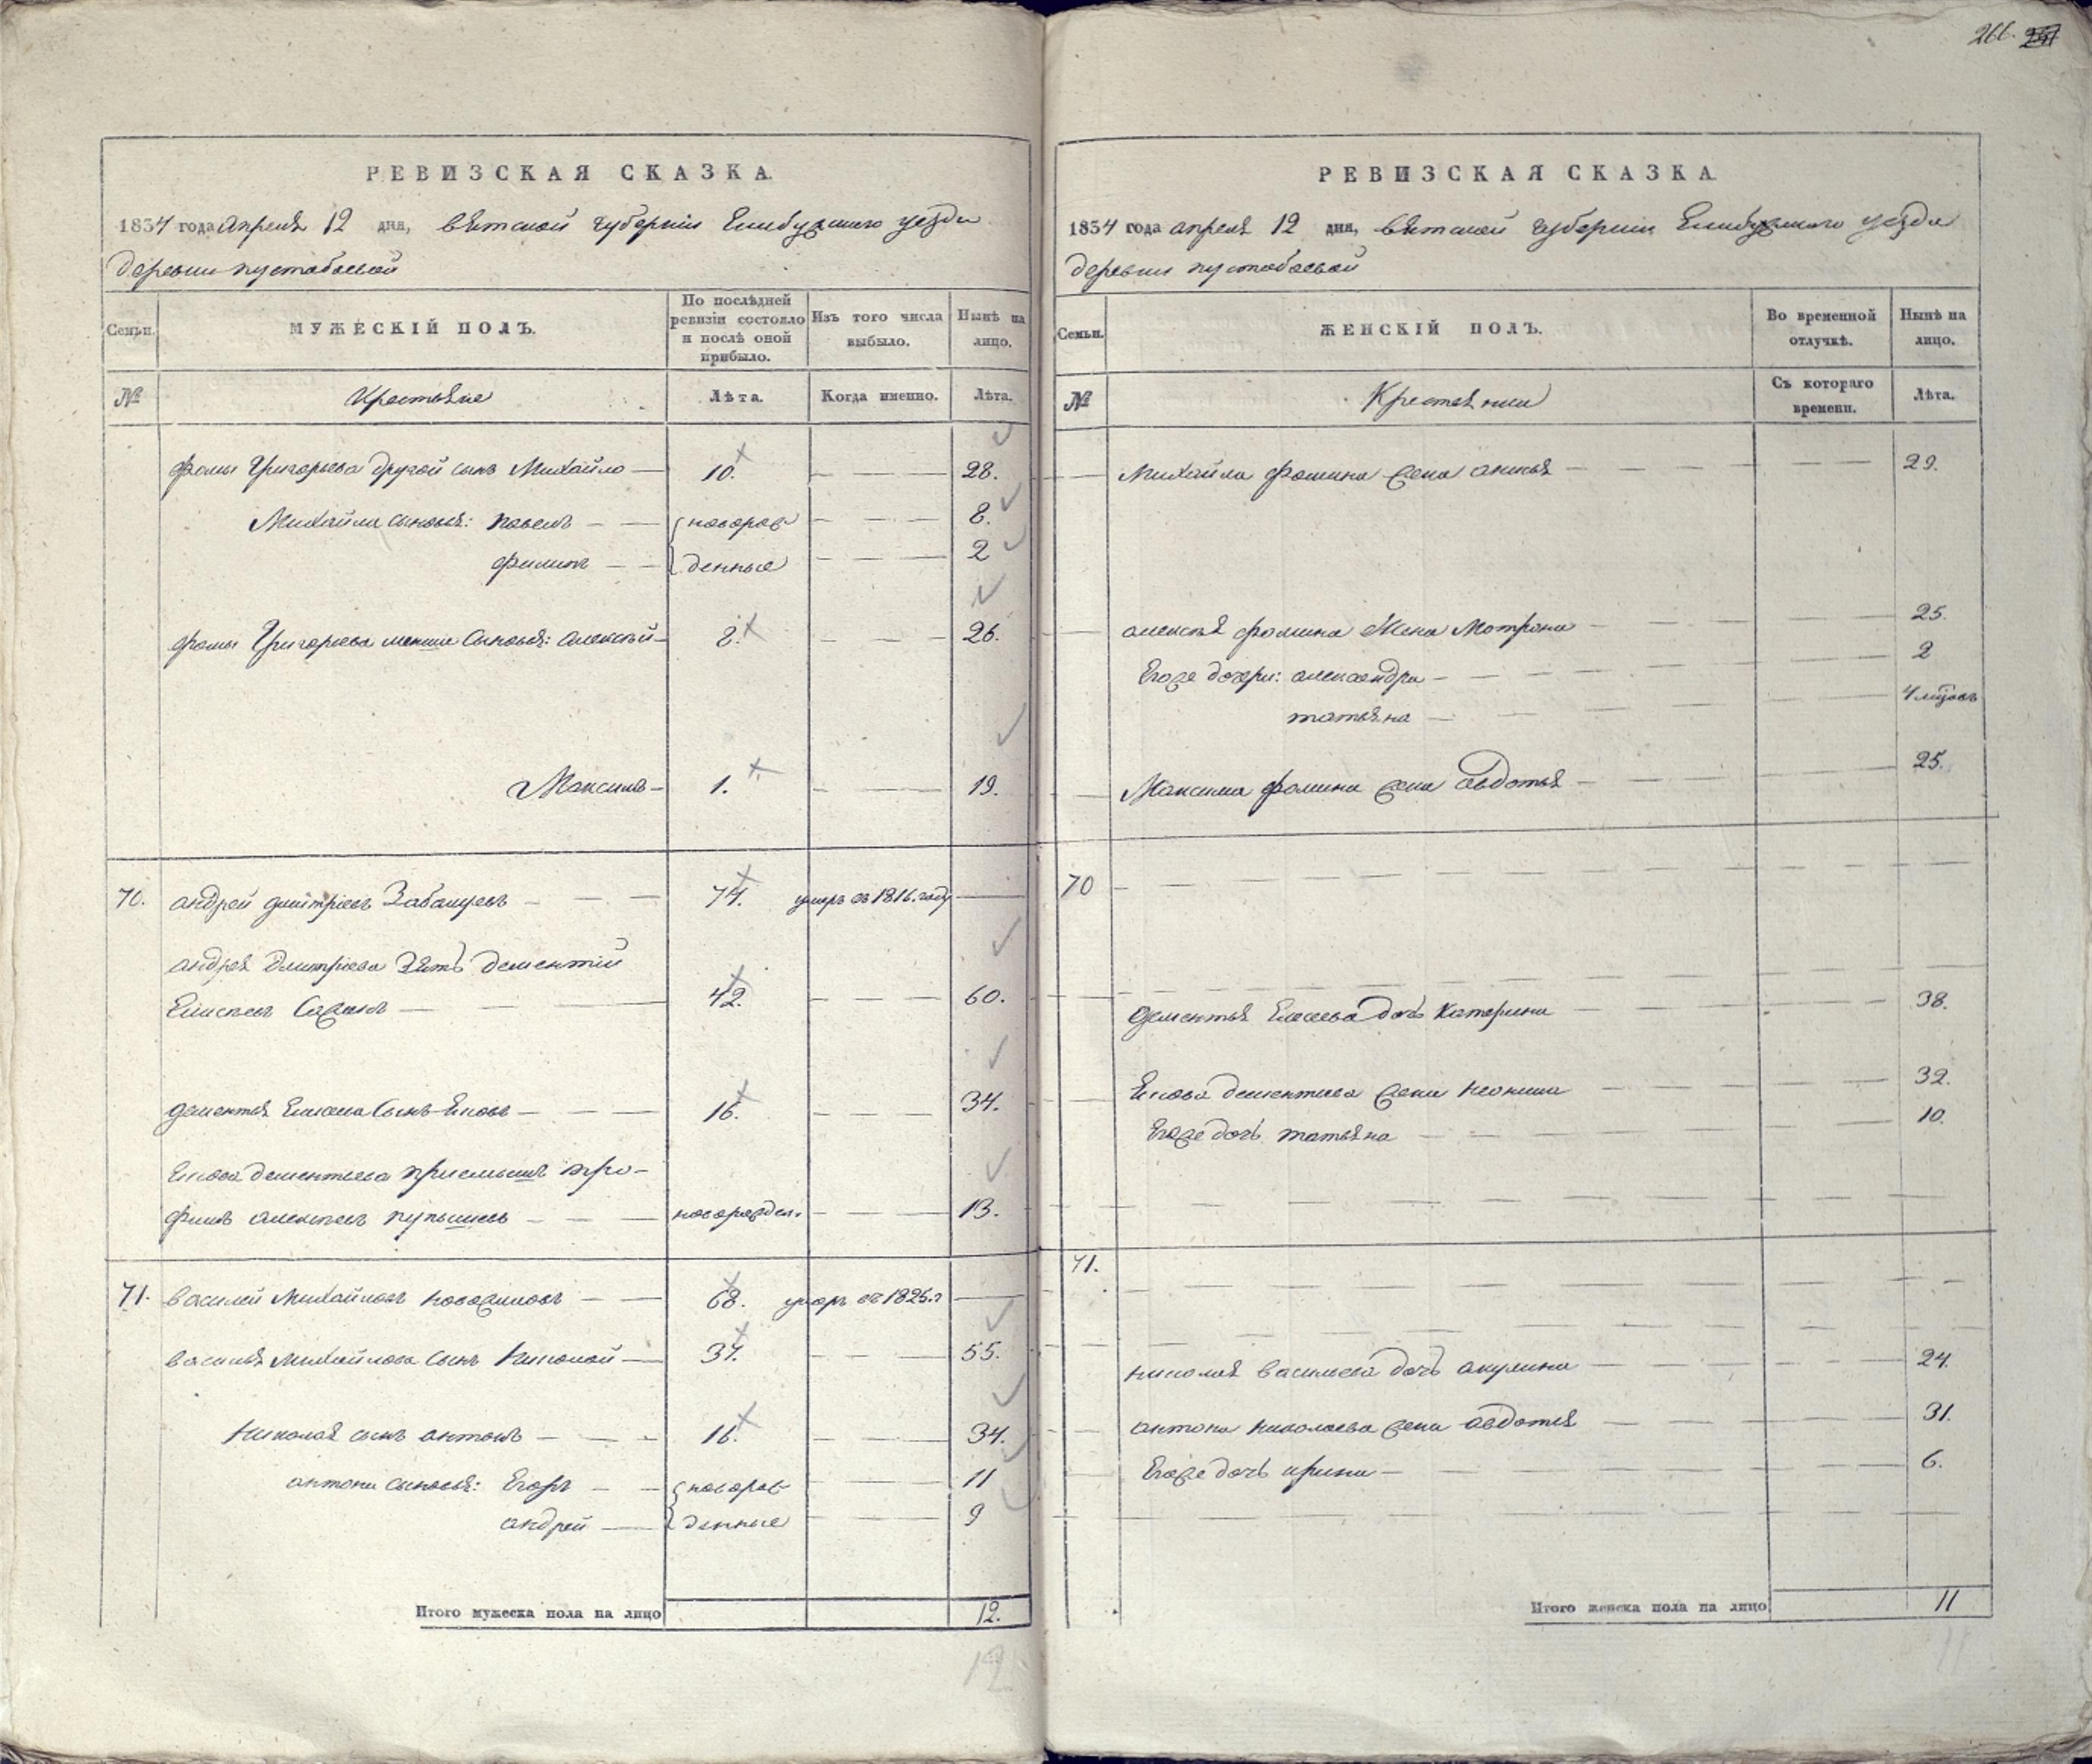 266.
РЕВИЗСКАЯ СКАЗКА.
1834 года апреля 12 дня, вятской губерніи Елабужского уезда
деревни пустобаевой
Семьи.
МУЖЕСКІЙ ПОЛЪ.
По послѣдней ревизіи состояло и послѣ оной прибыло.
Изъ того числа выбыло.
Нынѣ на лицо.
№
Крестьяне
Лѣта.
Когда именно.
Лѣта.
Фомы Григорьева другой сынъ Михайло 10. 28.
Михайла сыновья: павелъ новорож 8.
Филипъ денные 2
Фомы Григорьева меньшие сыновья: алексѣй 8. 26.
Максимъ 1. 19.
70. андрей дмитріевъ 74. умеръ въ 1816. году
андрея дмитріева Зять дементий
Елисѣевъ 42. 60.
дементья Елисеева сынъ 16. 34.
дементьева приемышъ тро-
фимъ алексѣевъ новорожден. 13.
71. василей Михайловъ 68. умеръ въ 1825. г
василья Михайлова сынъ Николай 37. 55.
Николая сынъ антонъ 16. 34.
антона сыновья: Егоръ новорож 11
андрей денные 9
Итого мужеска пола на лицо 12.
12
РЕВИЗСКАЯ СКАЗКА.
1834 года апреля 12 дня, вятской губерніи Елабужского уезда
деревни пустобаевой
Семьи.
ЖЕНСКІЙ ПОЛЪ.
Во временной отлучкѣ.
Нынѣ на лицо.
№
Крестьянки
Съ котораго времени.
Лѣта.
Михайла Фомина жена анисья 29.
алексѣя фомина Жена Мотрона 25.
Егоже дочери: александра 2
татьяна 4 мѣсяцовъ
Максима фомина жена авдотья 25.
70
дементья Елисеева дочь Катерина 38.
дементьева жена 32.
Егоже дочь татьяна 10.
71.
николая васильева дочь акулина 24.
антона николаева жена авдотья 31.
Егоже дочь ирина 6.
Итого женска пола на лицо 11
11